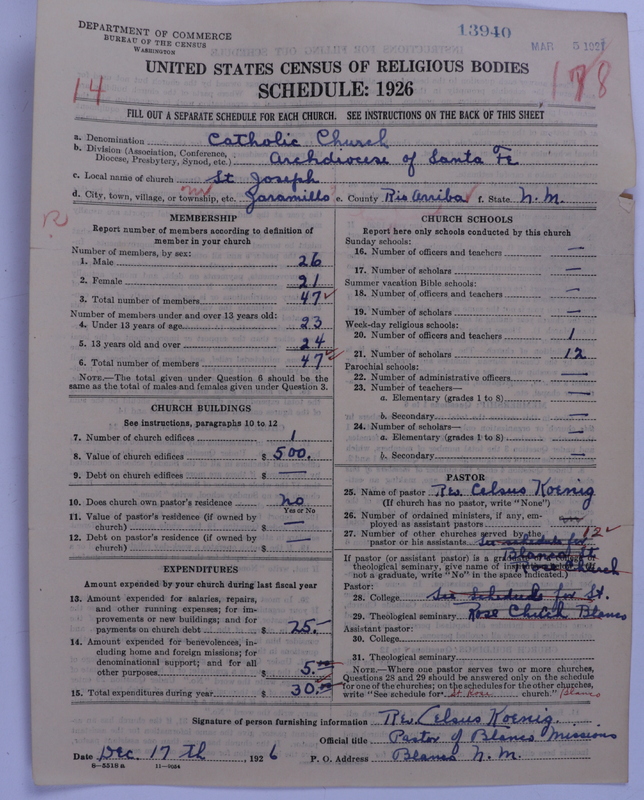 DEPARTMENT OF COMMERCE
BUREAU OF THE CENSUS
WASHINGTON
13940
MAR 5 1927
UNITED STATES CENSUS OF RELIGIOUS BODIES
SCHEDULE: 1926
14
178
FILL OUT A SEPARATE SCHEDULE FOR EACH CHURCH. SEE INSTRUCTIONS ON THE BACK OF THIS SHEET
a. Denomination Catholic Church
b. Division (Association, Conference, Diocese, Presbytery, Synod, etc.) Archdiocese of Santa Fe
c. Local name of church St Joseph
d. City, town, village, or township, etc. Jaramillo e. County Rio Arriba f. State N. M.
R
MEMBERSHIP
Report number of members according to definition of
member in your church
Number of members, by sex:
1. Male 26
2. Female 21
3. Total number of members 47
Number of members under and over 13 years old:
4. Under 13 years of age 23
5. 13 years old and over 24
6. Total number of members 47
NOTE.—The total given under Question 6 should be
same as the total of males and females given under Question 3.
CHURCH BUILDINGS
See instructions, paragraphs 10 to 12
7. Number of church edifices 1
8. Value of church edifices $ 500.
9. Debt on church edifices $ —
10. Does church own pastor's residence no
Yes or No
11. Value of pastor's residence (if owned by
church) $ —
12. Debt on pastor's residence (if owned by
church) $ —
EXPENDITURES
Amount expended by your church during last fiscal year
13. Amount expended for salaries, repairs,
and other running expenses; for im-
provements or new buildings; and for
payments on church debt $ 25.—
14. Amount expended for benevolences, in-
cluding home and foreign missions; for
denominational support; and for all
other purposes $ 5.00
15. Total expenditures during year $ 30.00
CHURCH SCHOOLS
Report here only schools conducted by this church
Sunday schools:
16. Number of officers and teachers —
17. Number of scholars —
Summer vacation Bible schools:
18. Number of officers and teachers —
19. Number of scholars —
Week-day religious schools:
20. Number of officers and teachers 1
21. Number of scholars 12
Parochial schools:
22. Number of administrative officers —
23. Number of teachers—
a. Elementary (grades 1 to 8) —
b. Secondary —
24. Number of scholars—
a. Elementary (grades 1 to 8) —
b. Secondary —
PASTOR
25. Name of pastor Rev. Celsus Koenig
(If church has no pastor, write "None")
26. Number of ordained ministers, if any, em-
ployed as assistant pastors
27. Number of other churches served by the 12
pastor or his assistants See schedule for
Blanco St.
Rose Church
If pastor (or assistant pastor) is a graduate of college or
theological seminary, give name of institution (if
not a graduate, write "No" in the space indicated.)
Pastor:
28. College See Schedule for St.
29. Theological seminary Rose Church Blanco
Assistant pastor:
30. College
31. Theological seminary
NOTE.—Where one pastor serves two or more churches,
Questions 28 and 29 should be answered only on the schedule
for one of the churches; on the schedules for the other churches,
write "See schedule for St Rose church." Blanco
Signature of person furnishing information Rev. Celsus Koenig.
Official title Pastor of Blanco Missions
Date Dec. 17th, 1926 P. O. Address Blanco N. M.
8—5519a 11—9054